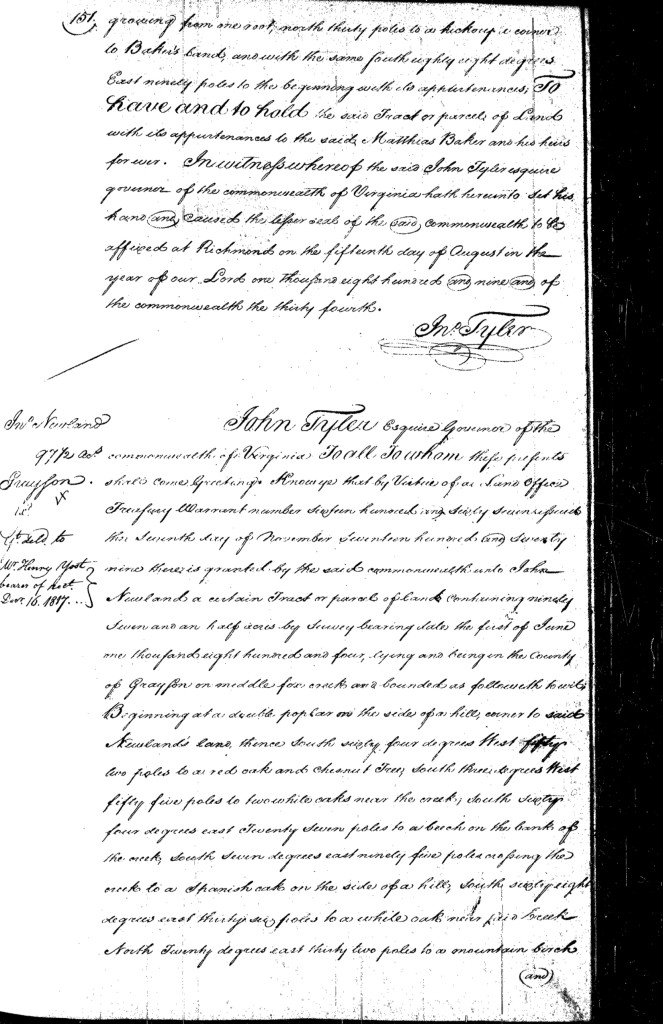 151.
growing from one root, north thirty poles to a hickory a corner
to Baker's land, and with the same South eighty eight degrees
East ninety poles to the beginning with its appurtenances; To
have and to hold the said Tract or parcel of Land
with its appurtenances to the said, Matthias Baker and his heirs
forever. In witness whereof the said John Tyler esquire
governor of the commonwealth of Virginia hath hereunto set his
hand and caused the lesser seal of the said commonwealth to be
affixed at Richmond on the fifteenth day of August in the
year of our Lord one thousand eight hundred and nine and of
the commonwealth the thirty fourth.
Jno. Tyler
Jno. Newland
97 1/2 acs.
Grayson.
John Tyler Esquire Governor of the
commonwealth of Virginia To all To whom these presents
shall come Greeting: Know ye that by Virtue of a Land Office
Treasury Warrant number sixteen hundred and sixty seven issued
the Seventh day of November seventeen hundred and seventy
nine there is granted by the said commonwealth unto John
Newland a certain Tract or parcel of land containing ninety
seven and an half acres by survey bearing date the first of June
one thousand eight hundred and four, lying and being in the County
of Grayson on middle fox creek and bounded as followeth to wit:
Beginning at a double poplar on the side of a hill, corner to said
Newland's land, thence South sixty four degrees West fifty
two poles to a red oak and chesnut Tree, South three degrees West
fifty five poles to two white oaks near the creek, South sixty
four degrees east Twenty Seven poles to a beech on the bank of
the creek, South seven degrees east ninety five poles crossing the
creek to a Spanish oak on the side of a hill, South sixty eight
degrees east thirty six poles to a white oak near said creek
North Twenty degrees east thirty two poles to a mountain birch
(and)
deld. to
Mr. Henry Yost
bearer of rect.
Decr. 16. 1817...